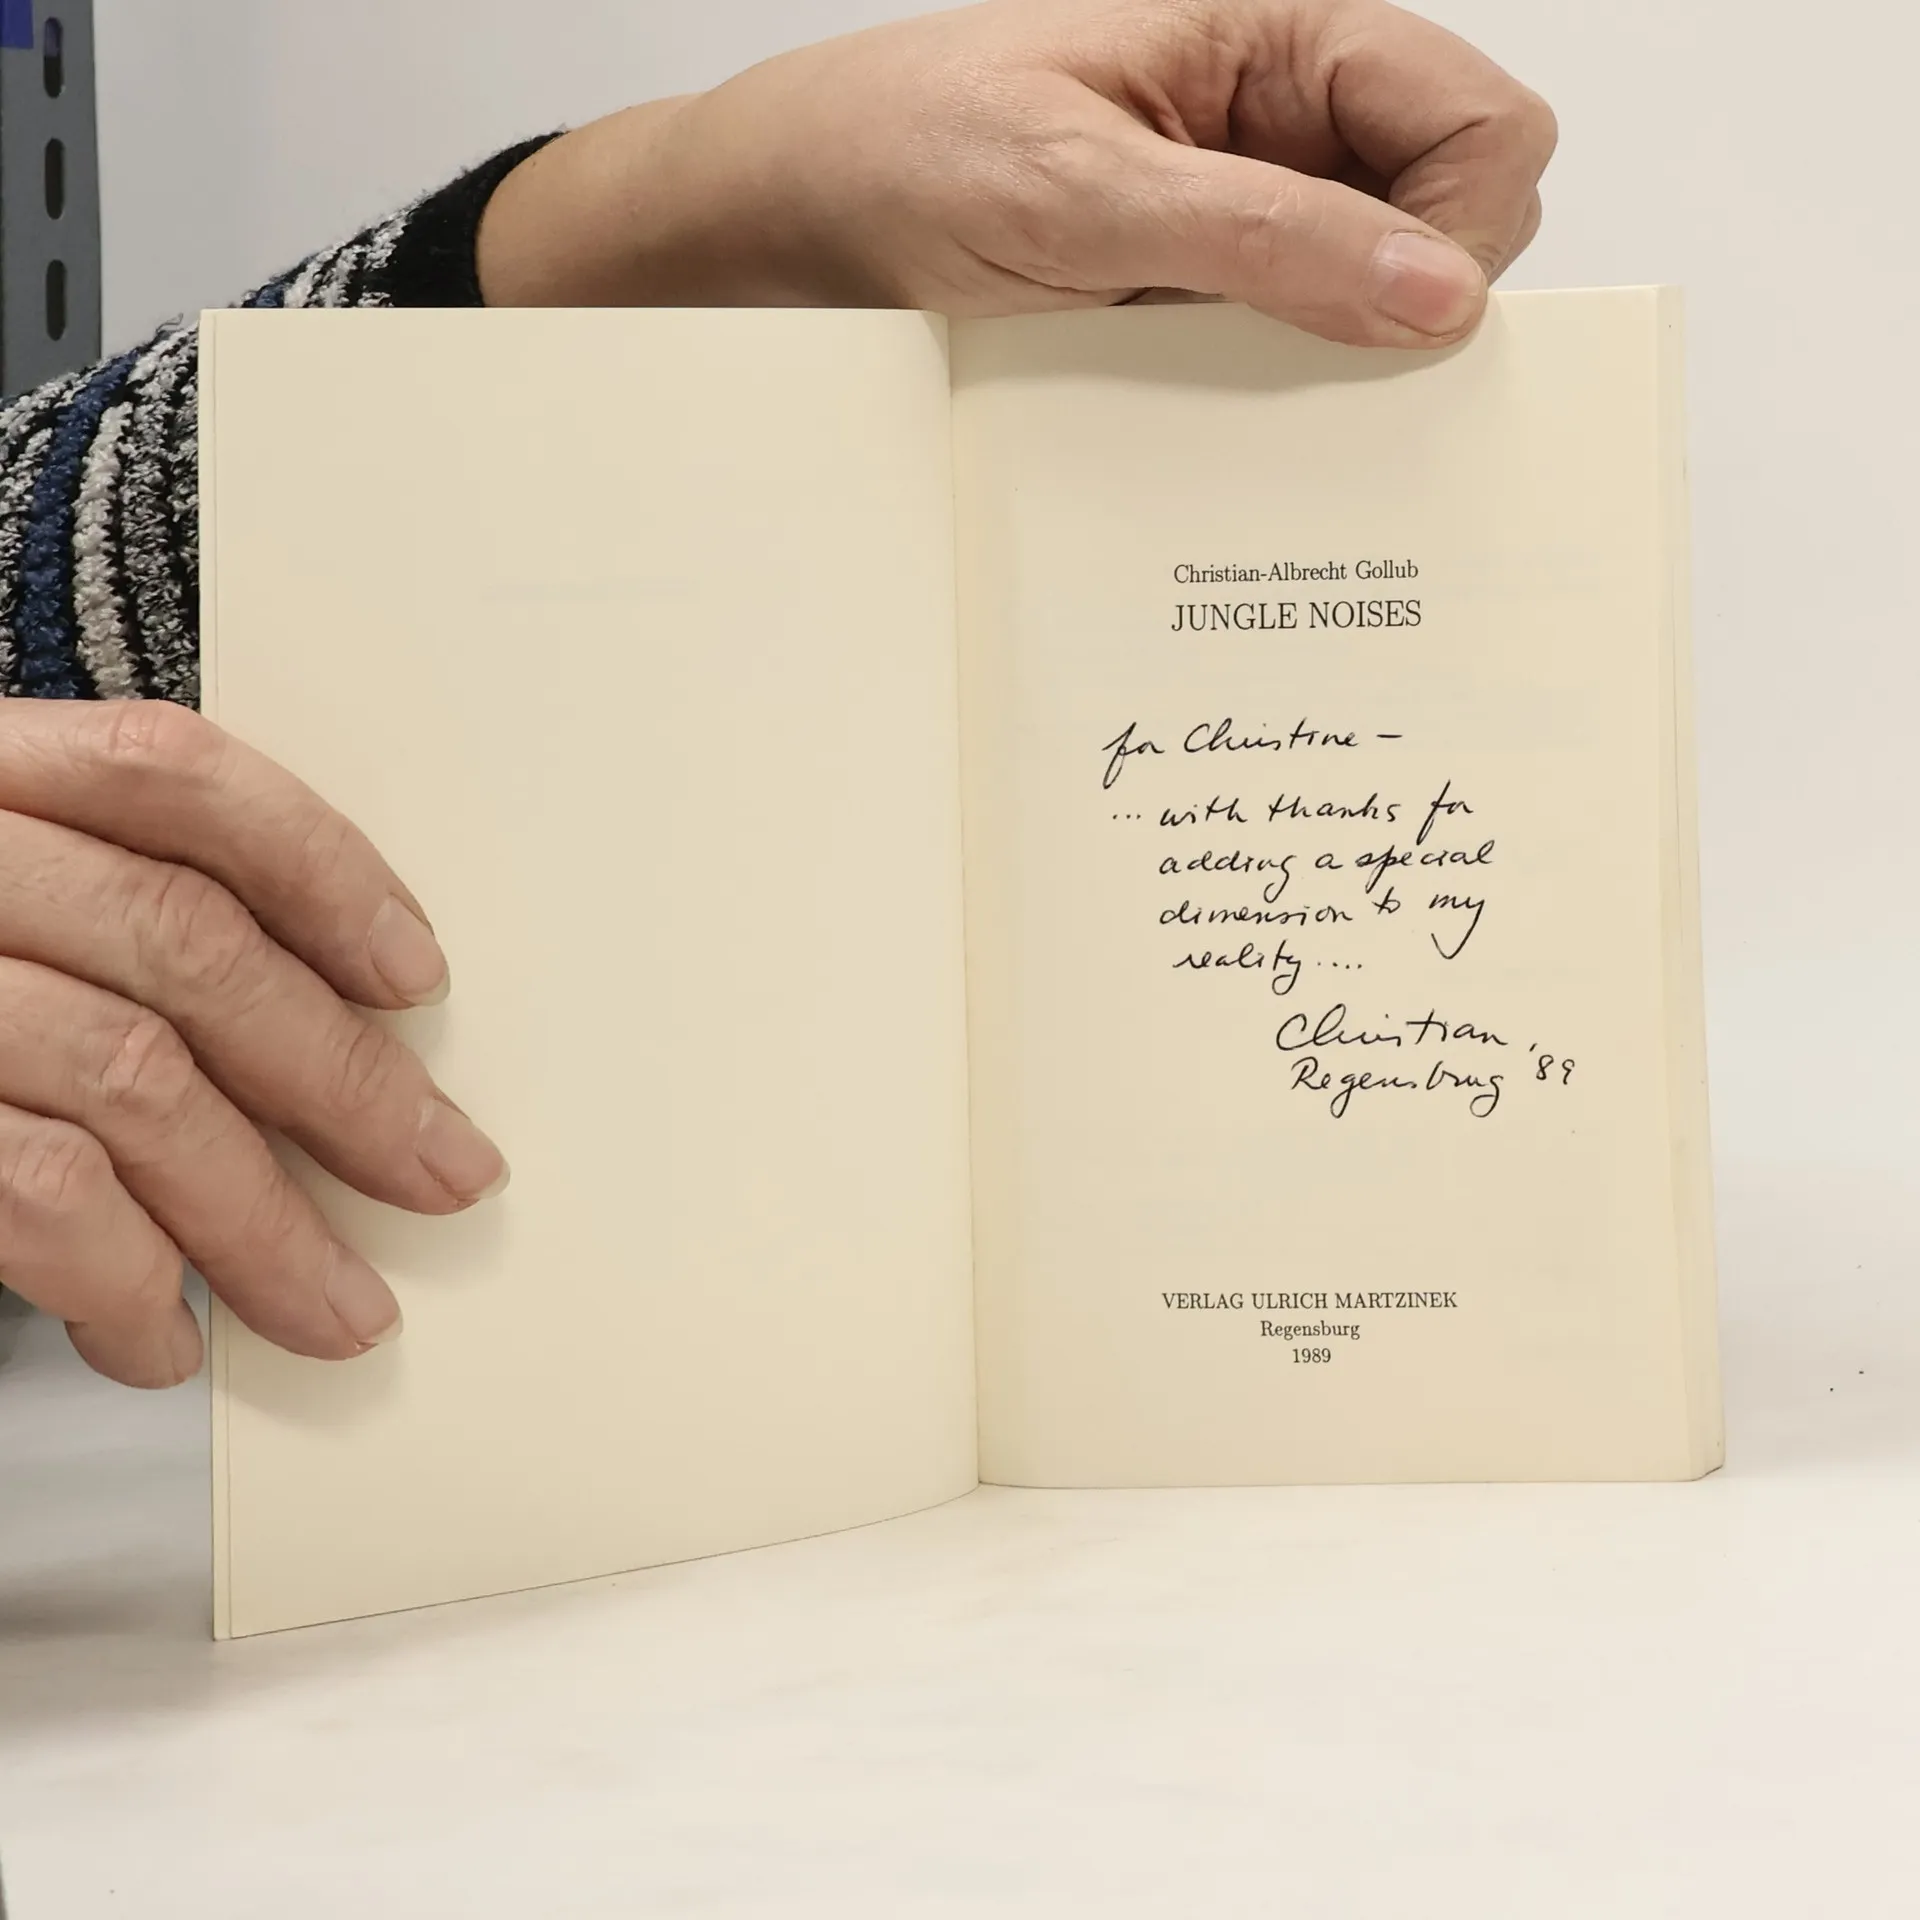 Christian-Albrecht Gollub
JUNGLE NOISES
for Christine –
... with thanks for
adding a special
dimension to my
reality....
Christian,
Regensburg '89
VERLAG ULRICH MARTZINEK
Regensburg
1989